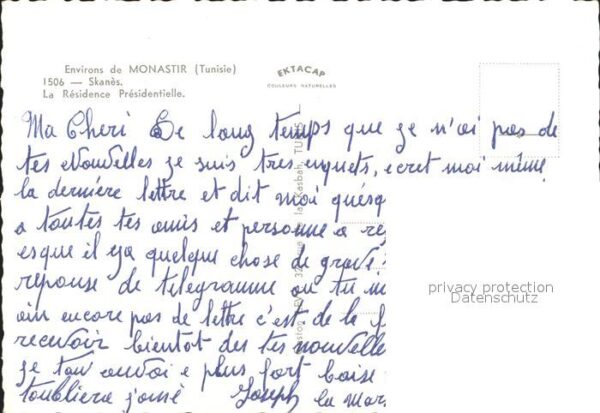 Environs de MONASTIR (Tunisie)
1506 — Skanès.
La Résidence Présidentielle.
EKTACAP
COULEURS NATURELLES
Ma Cheri Le long temps que je n'ai pas de
tes Nouvelles je suis tres enquets, ecret moi même
la dernière lettre et dit moi quésq
a toutes tes amis et personne a re
esque il ya quelque chose de grave
reponse de telegramme ou tu
encore pas de lettre c'est de la
recevoir bientot des tes nouvelle
je tou envoi e plus fort baise
Joseph la Mar
de la Kasbah, TUNIS
privacy protection
Datenschutz